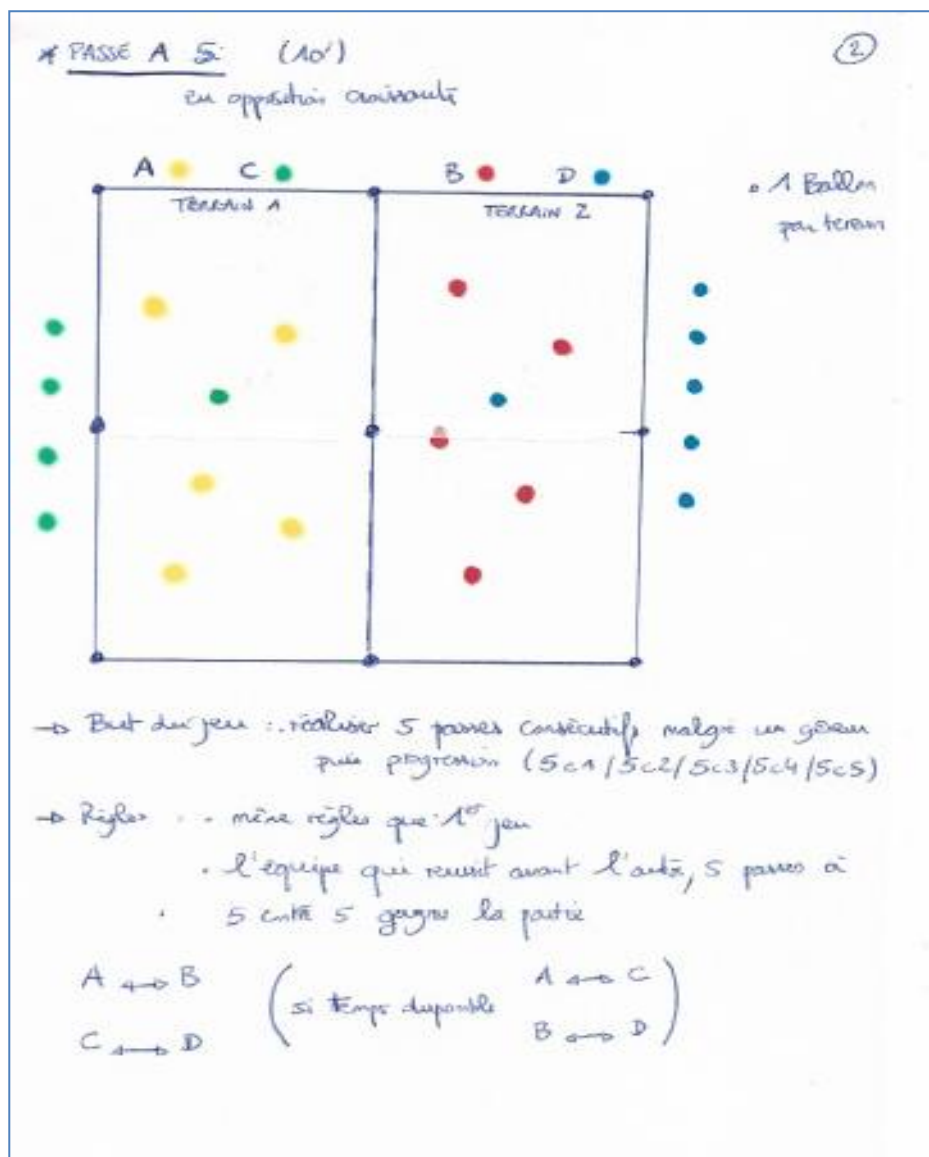 * PASSE A 5: (10')
②
en opposition croissante
A C B D
TERRAIN 1 TERRAIN 2
• 1 Ballon
par terrain
→ But du jeu : réaliser 5 passes consécutifs malgré un gêneur
puis progression (5c1/5c2/5c3/5c4/5c5)
→ Règles • même règles que 1er jeu
• l'équipe qui reussit avant l'autre, 5 passes à
5 contre 5 gagne la partie
A ↔ B
C ↔ D
(si temps disponible A ↔ C
B ↔ D)